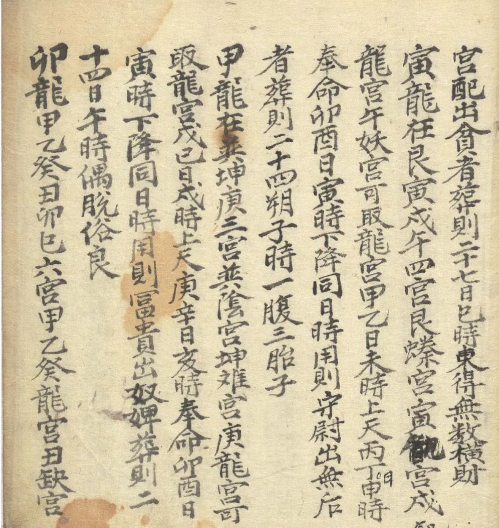 宮配出貧者葬則二十七日巳時東得無数橫財
寅龍在艮寅戌午四宮艮螓宮寅宮戌
龍宮午妖宮可取龍宮甲乙日未時上天丙丁日申時
奉命卯酉日寅時下降同日時用則守尉出無后
者葬則二十四朔子時一腹三胎子
甲龍在坤庚三宮並陰宮坤难宮庚龍宮可
取龍宮戊巳日戌時上天庚辛日亥時奉命卯酉日
寅時下降同日時用則冨貴出奴婢葬則二
十四日午時偶脫俗良
卯龍甲乙癸丑卯巳六宮甲乙癸龍宮丑缺宮